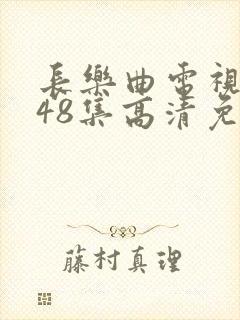 長樂曲電視
48集高清免
藤村真理